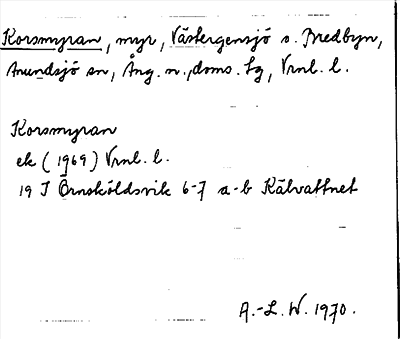 Korsmyran, myr, Västergensjö o. Bredbyn,
Anundsjö sn, Ång. n., doms. lg, Vrnl. l.
Korsmyran
ek (1969) Vrnl. l.
19 J Örnsköldsvik 6-7 a-b Kälvattnet
A.-L. W. 1970.